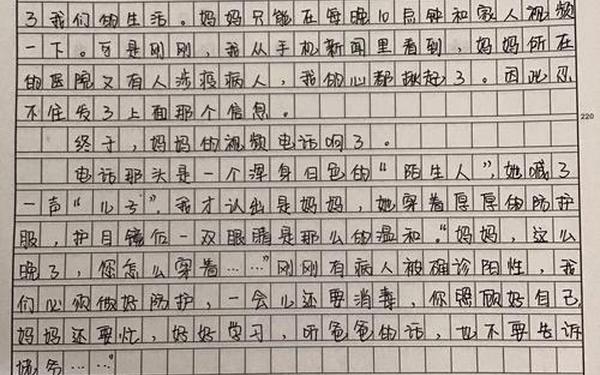 了我们的生活。妈妈只能在每晚10点钟和家人视频
一下。可是刚刚，我从手机新闻里看到，妈妈所在
的医院又有人涉疫病人，我的心都揪起了。因此忍
不住发了上面那个信息。
220
终于，妈妈的视频电话响了。
电话那头是一个浑身白色的“陌生人”，她喊了
一声“儿子”，我才认出是妈妈，她穿着厚厚的防护
服，护目镜后一双眼睛是那么的温和。“妈妈，这么
晚了，您怎么穿着……”刚刚有病人被确诊阳性，我
们必须做好防护，一会儿还要消毒，你照顾好自己
妈妈还要忙，好好学习，听爸爸的话，也不要告诉
……”